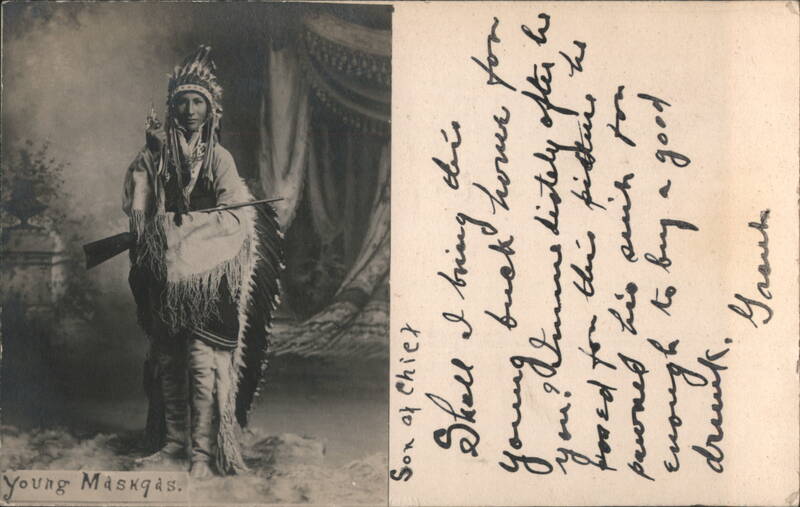 Young Maskgas.
Son of Chief
Shall I bring this
young buck home for
you? Immediately after he
posed for this picture he
pawned his suit for
enough to buy a good
drunk.